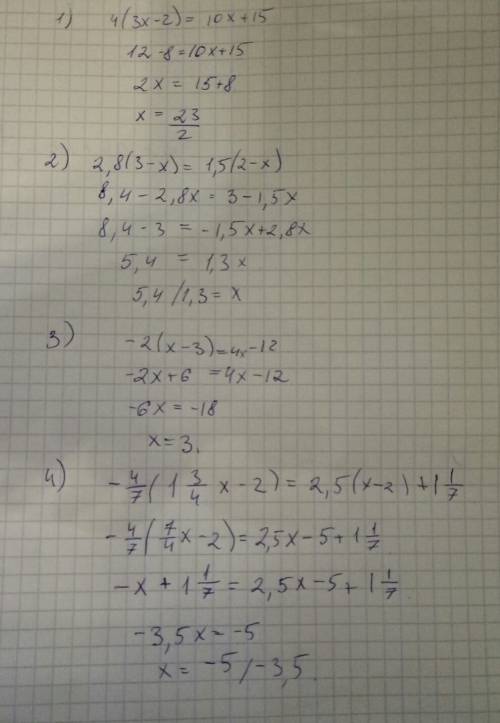 1) 4(3x-2)= 10x+15
12-8=10x+15
2x = 15+8
x = 23/2
2) 2,8(3-x)= 1,5(2-x)
8,4-2,8x= 3-1,5x
8,4-3 = -1,5x+2,8x
5,4 = 1,3x
5,4/1,3= x
3) -2(x-3)=4x-12
-2x+6 =4x-12
-6x = -18
x=3.
4) -4/7(1 3/4 x-2)= 2,5(x-2)+1 1/7
-4/7(7/4x-2)=2,5x-5+1 1/7
-x+1 1/7 = 2,5x-5+1 1/7
-3,5x=-5
x= -5/-3,5.